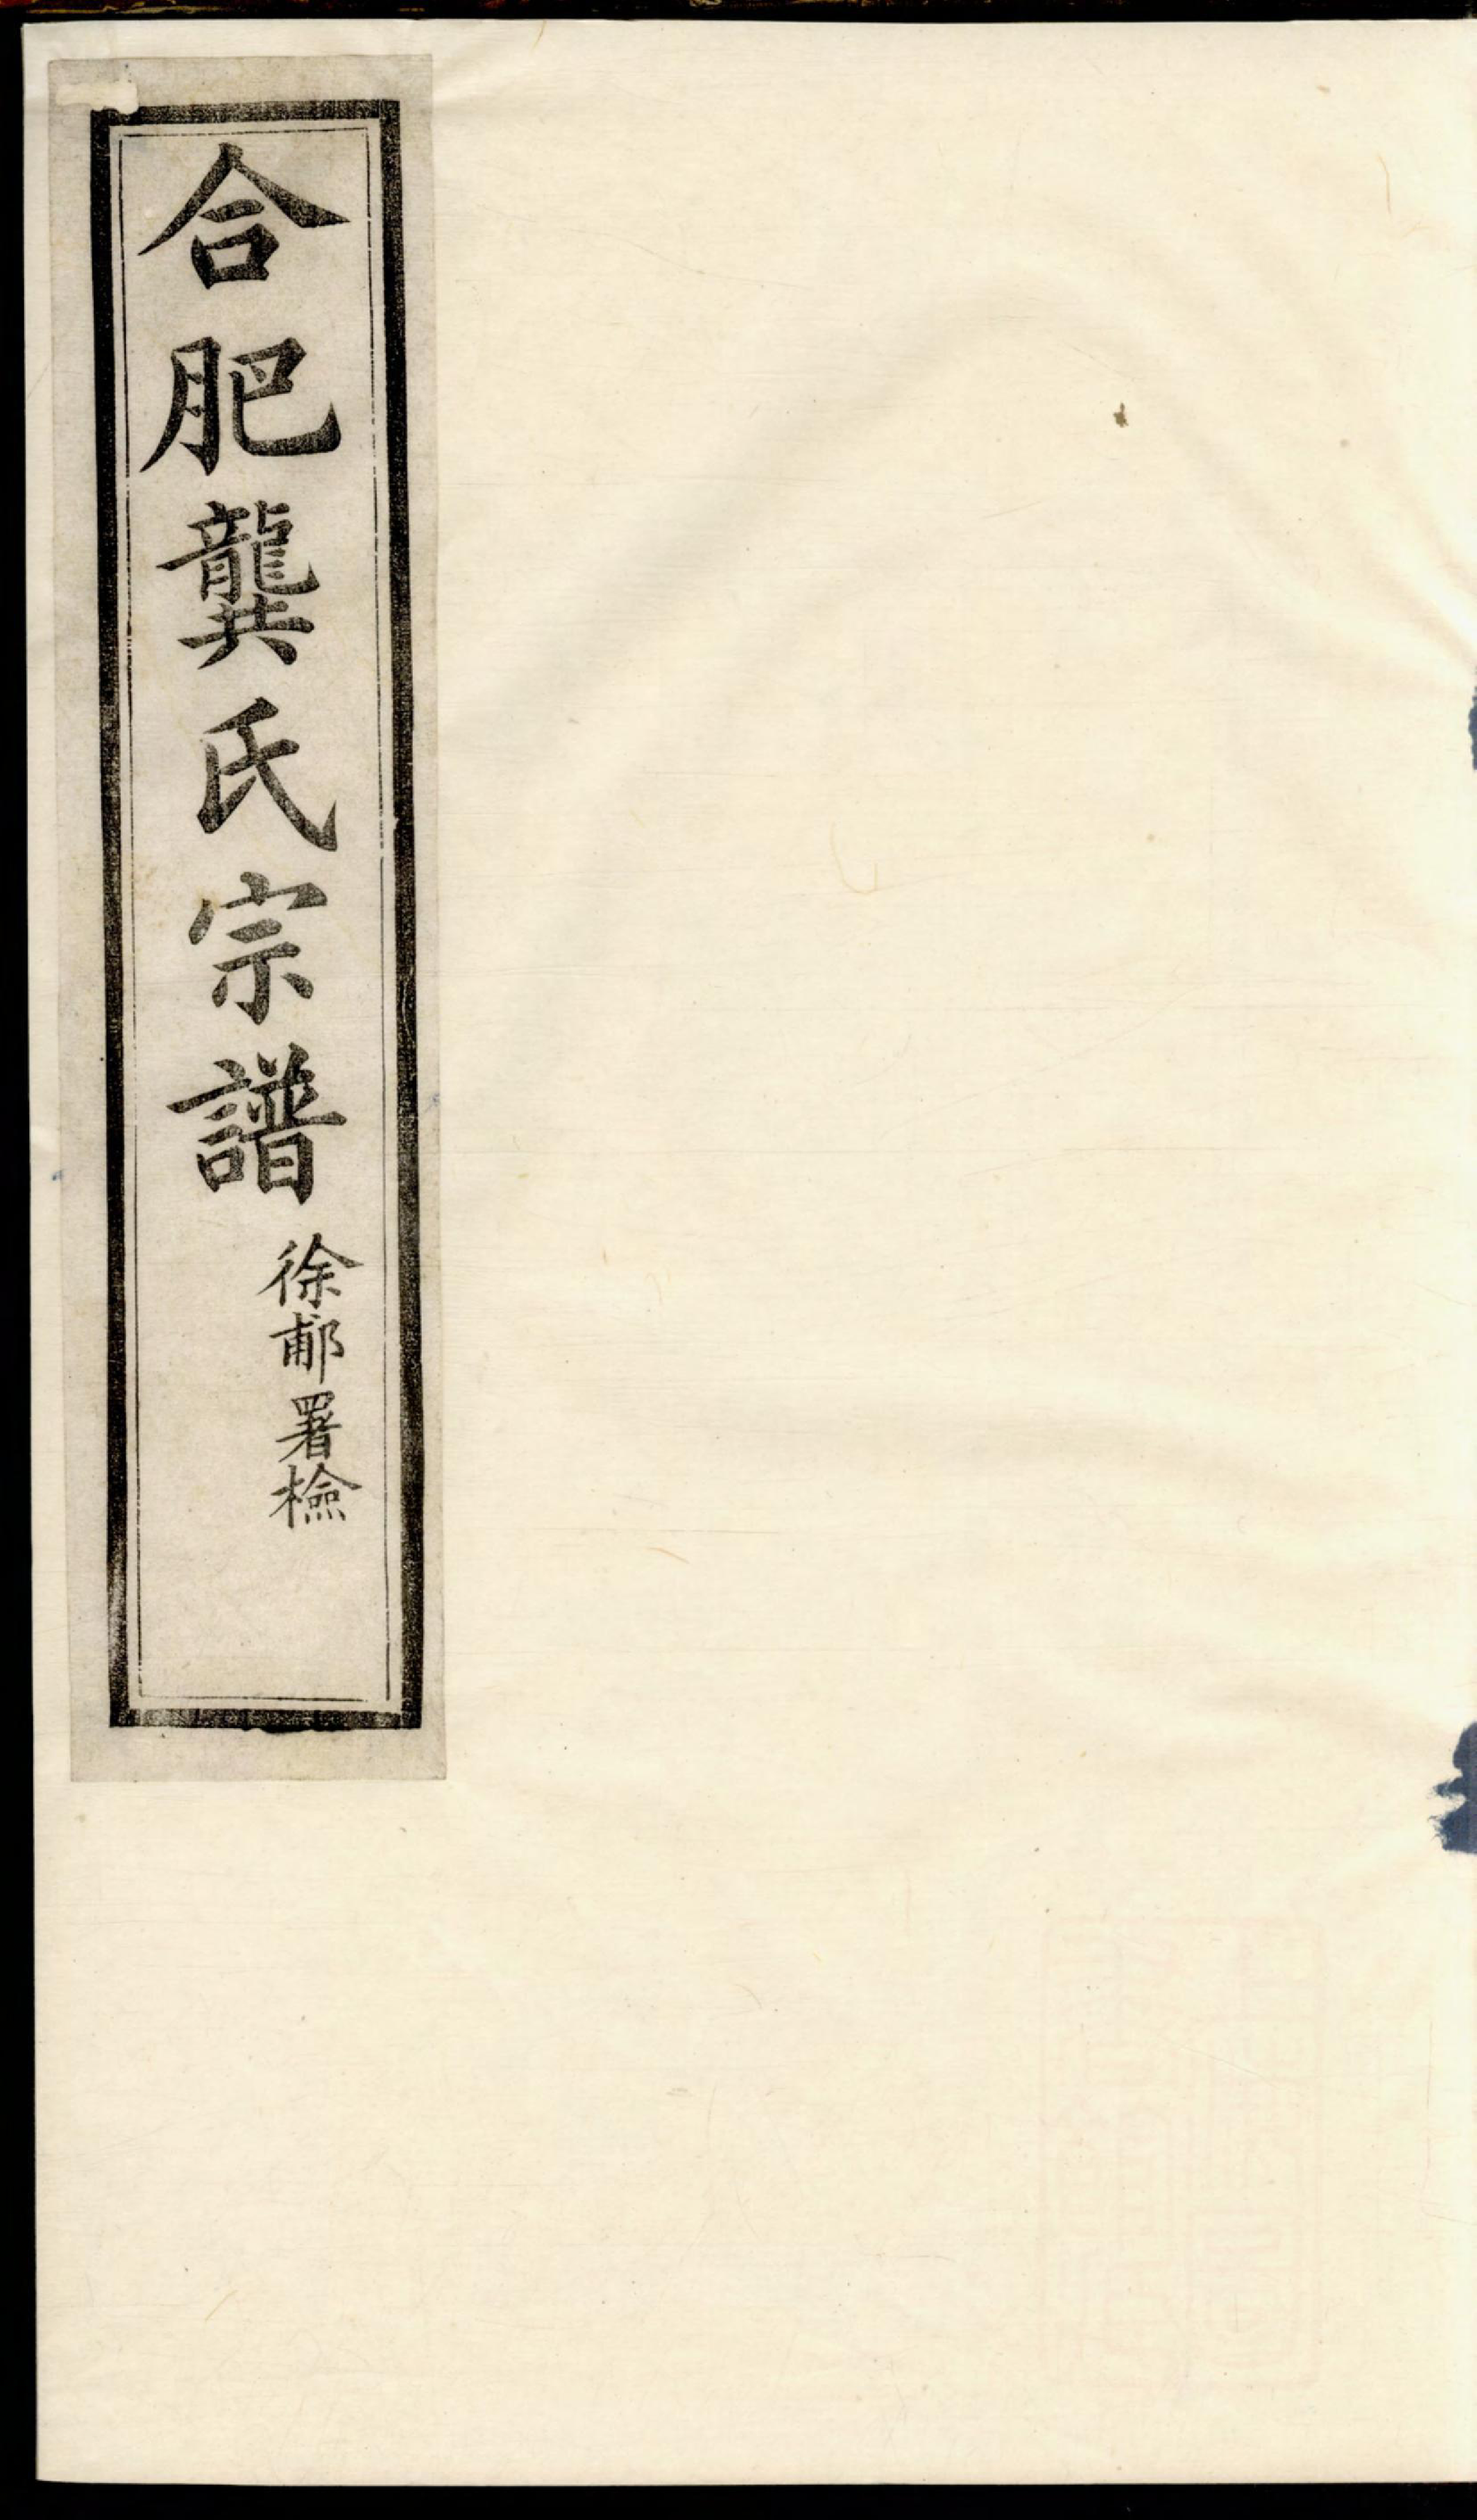 合肥龔氏宗譜
徐鄘署檢